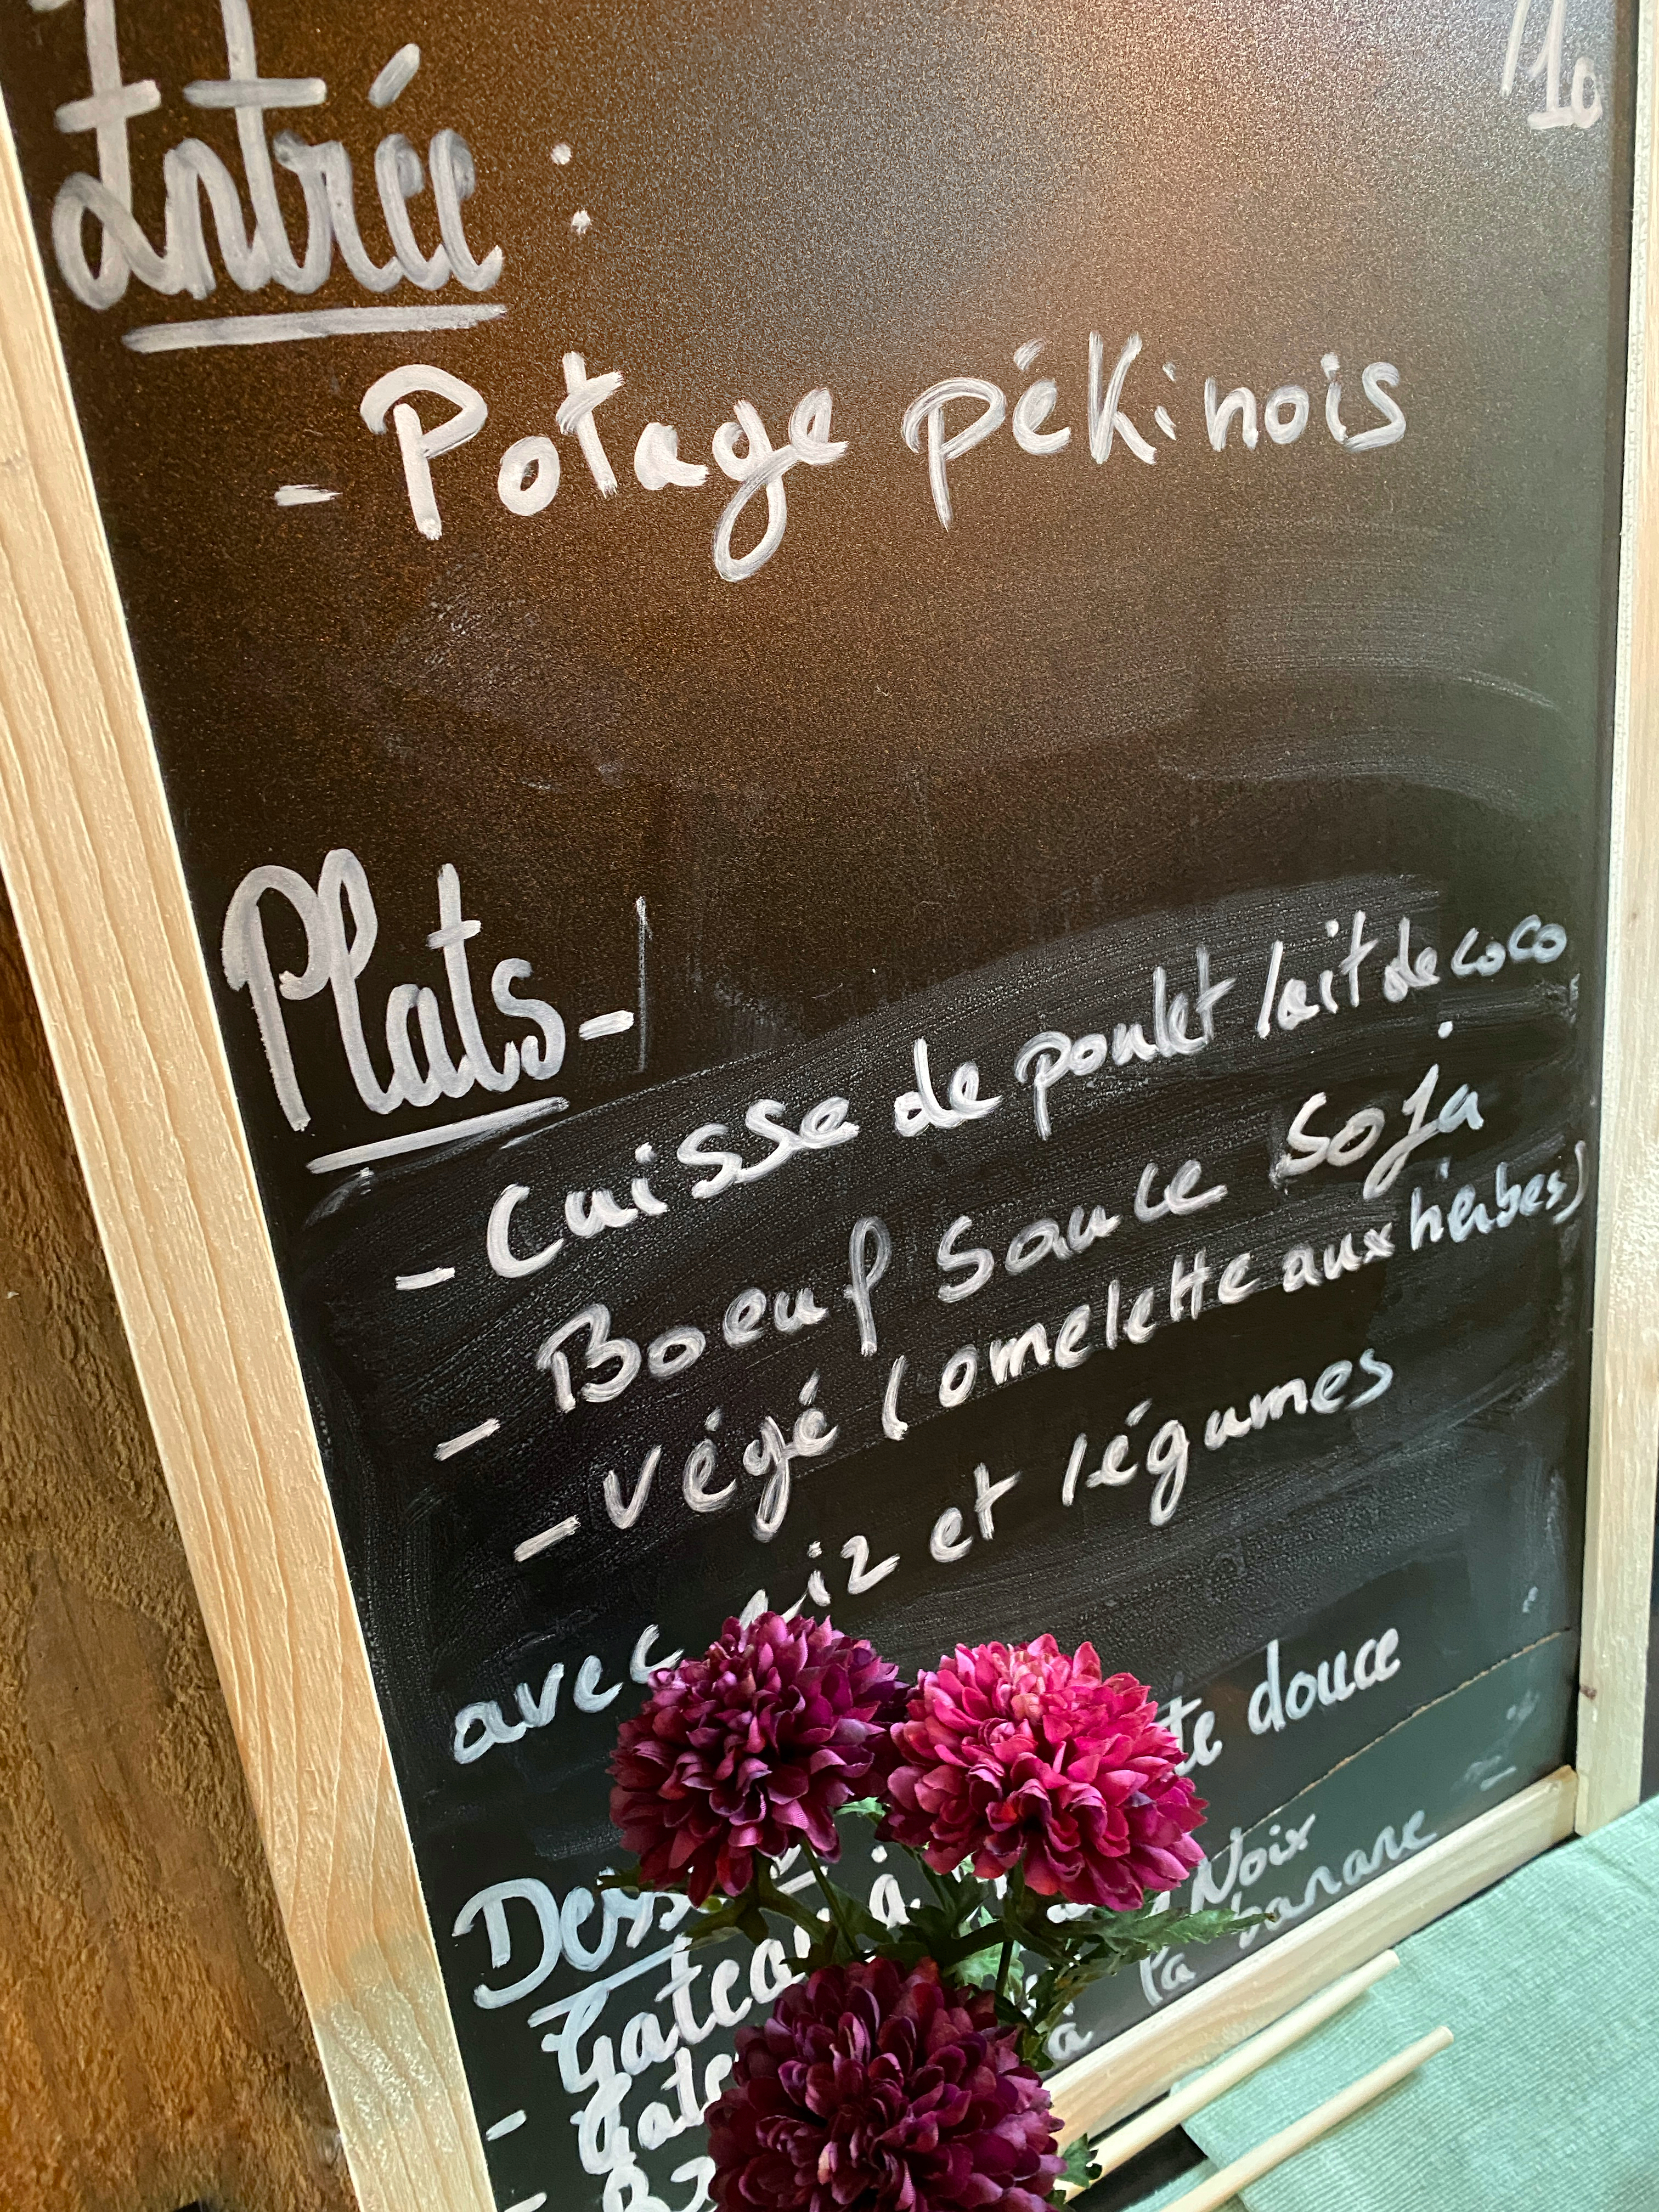 /10
Entrée :
- Potage pékinois
Plats -
- Cuisse de poulet lait de coco
- Boeuf sauce soja
- végé (omelette aux hérbes)
avec riz et légumes
douce
Noix
à la banane